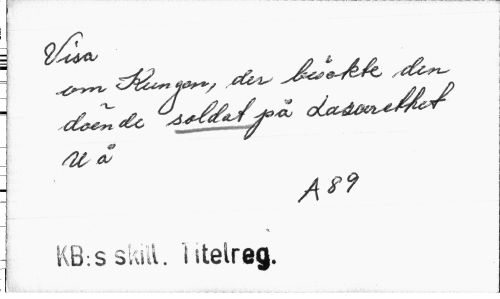 Visa
om Kungen, der besökte den
döende soldat på Lazarethet
u å
A 89
KB:s skill. Titelreg.